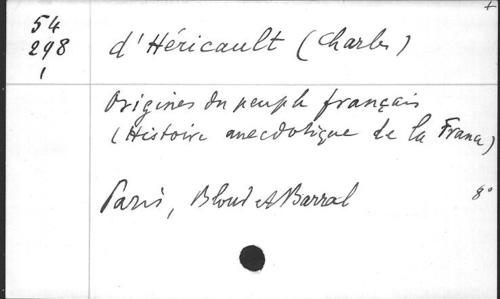 +
54
298
1
d'Héricault (Charles)
Origines du peuple français
(Histoire anecdotique de la France)
Paris, Bloud et Barral
8°